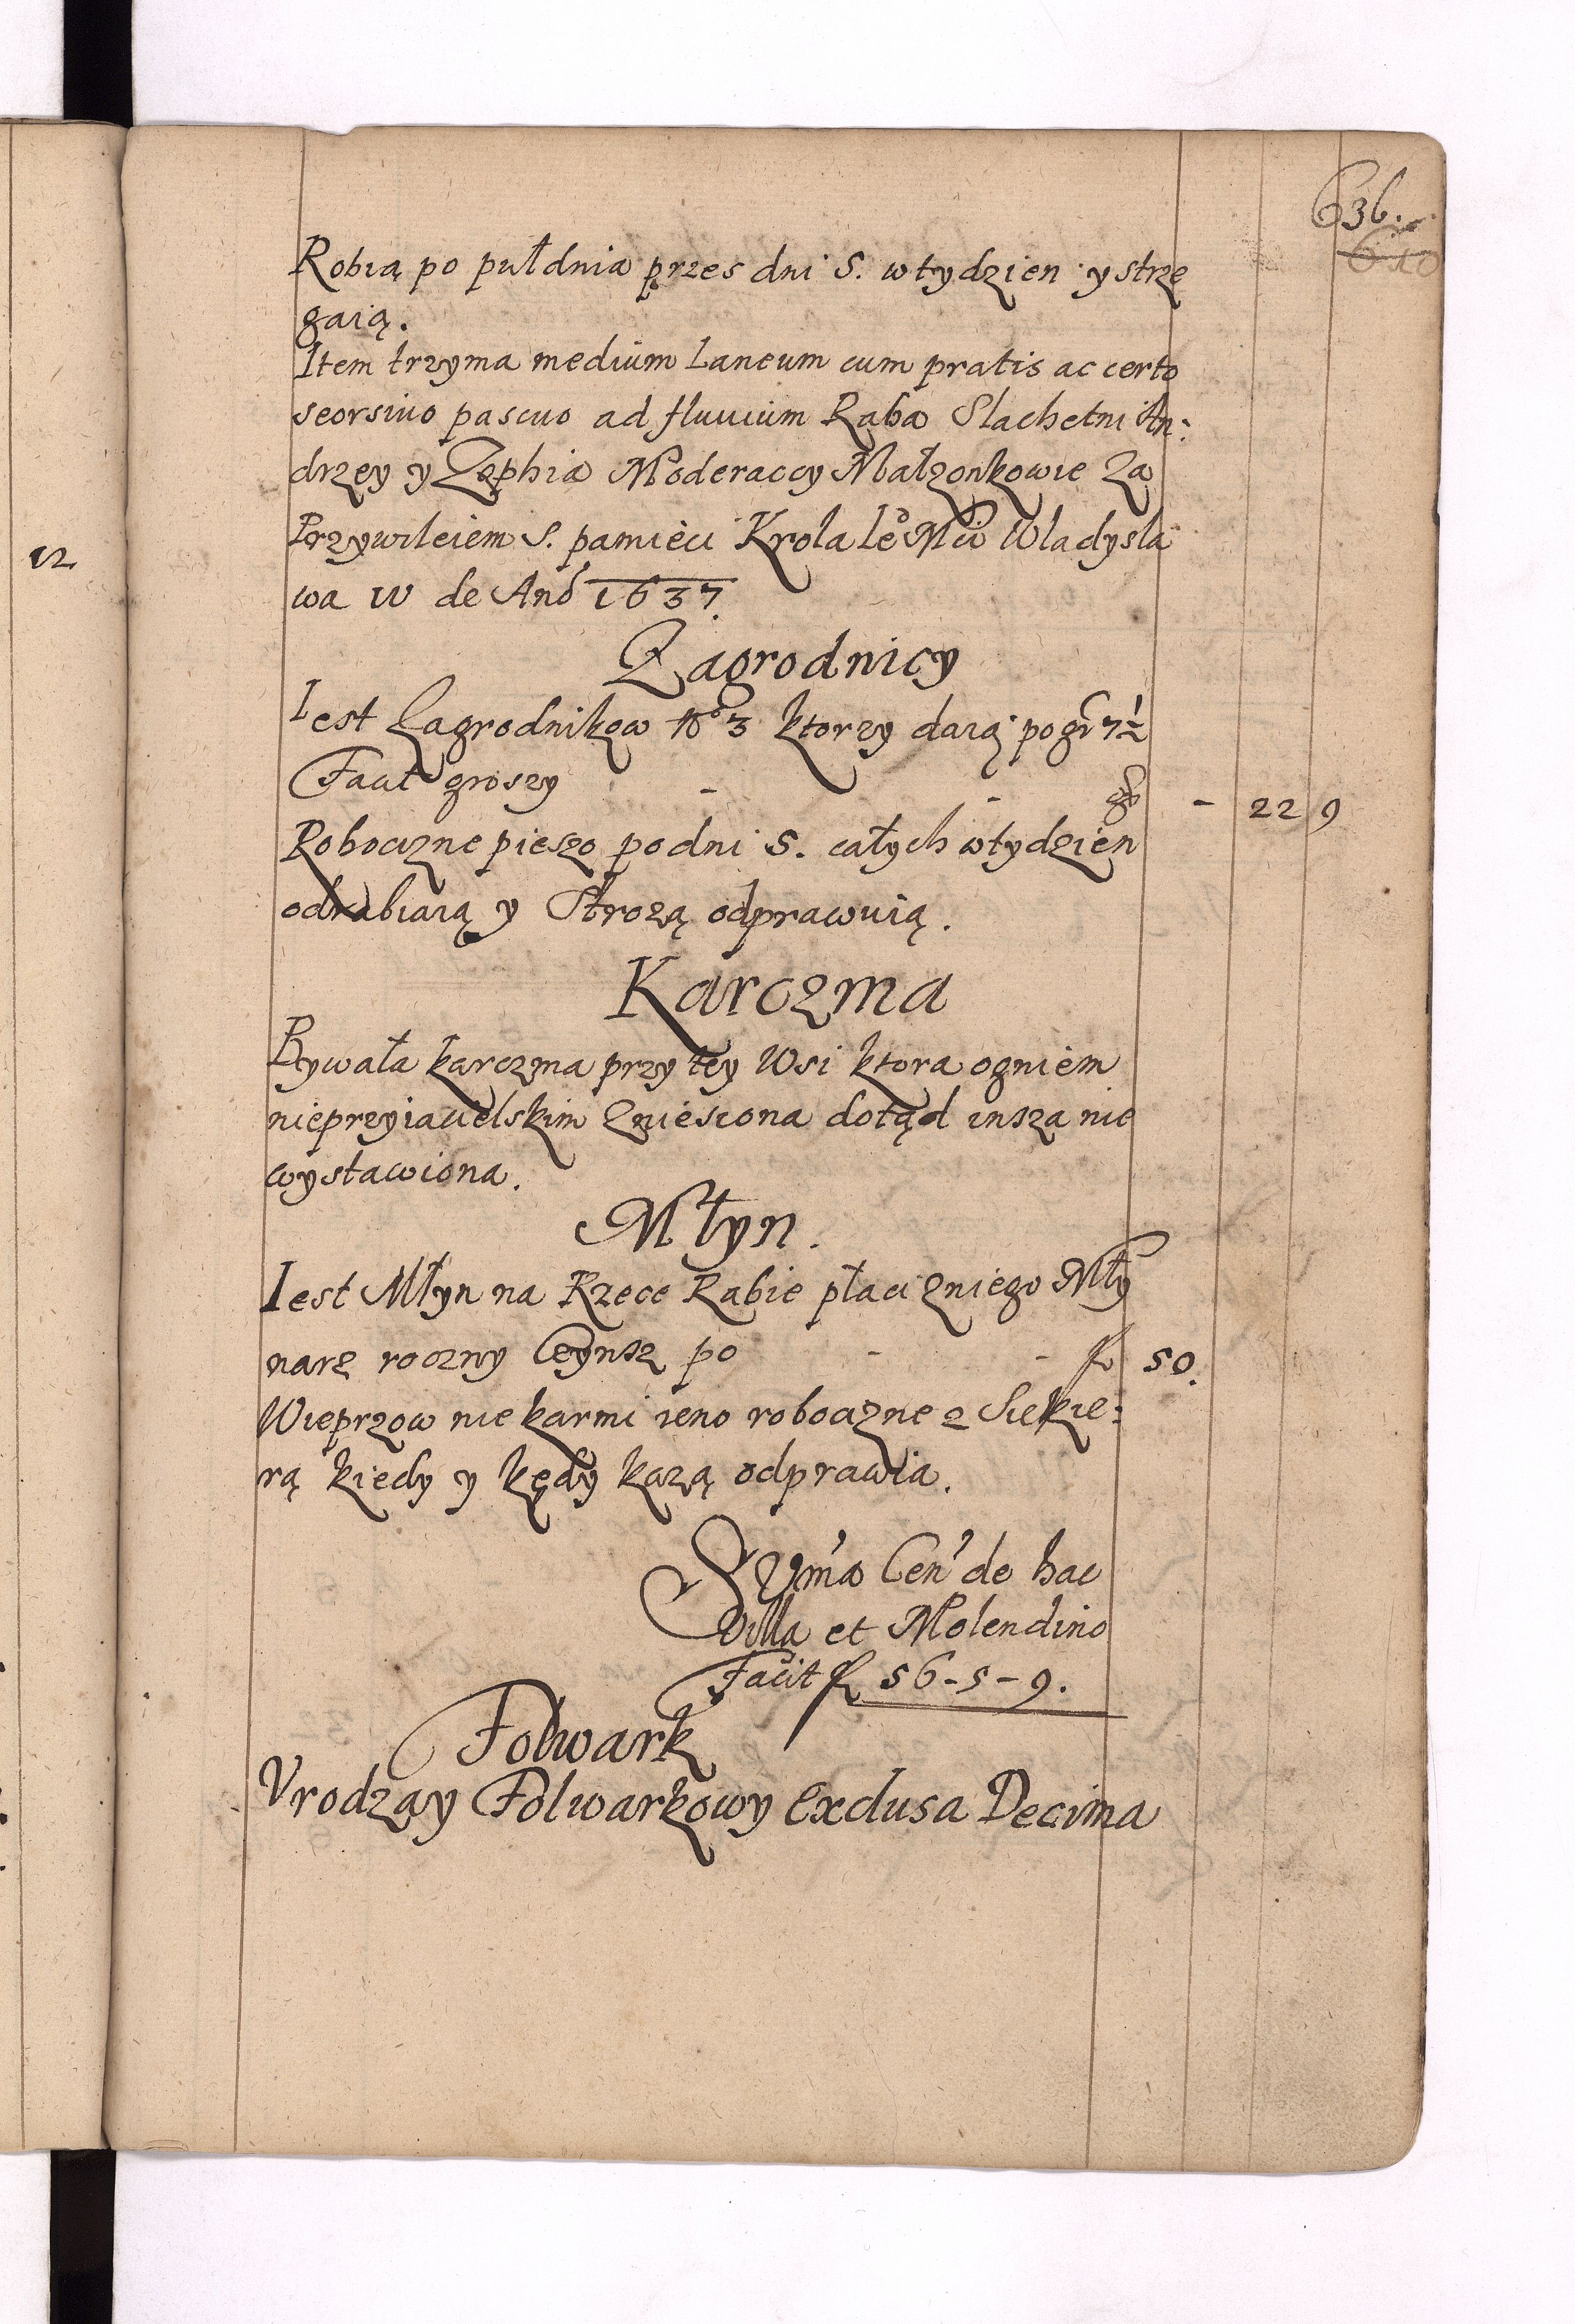 636.
610
Robią po pułdnia przes dni 5. w tydzien y strze
gaią.
Item trzyma medium Laneum cum pratis ac certo
seorsiuo pascuo ad fluuium Raba Slachetni An:
drzey y Zophia Moderaccy Małzonkowie za
Przywileiem S. pamięci Krola Ie° Mci Wladysla
wa IV de Anō 1637.
Zagrodnicy
Iest Zagrodnikow N° 3 ktorzy daią po gr 7½
Facit groszy - - gr - 22 9
Roboczne pieszo po dni 5. całych w tydzien
odrabiaią y Strożą odprawuią.
Karczma
Bywała karczma przy tey Wsi ktora ogniem
nieprzyiacielskim zniesiona dotąd insza nie
wystawiona.
Młyn.
Iest Młyn na Rzece Rabie płaci z niego Mły
narz roczny Czynsz po - - fl 50.
Wieprzow nie karmi ieno roboczne z Siekie:
rą kiedy y kędy każą odprawia.
Sum̄a Cen' de hac
Villa et Molendino
Facit fl 56-5-9.
Folwark
Vrodzay Folwarkowy Exclusa Decima